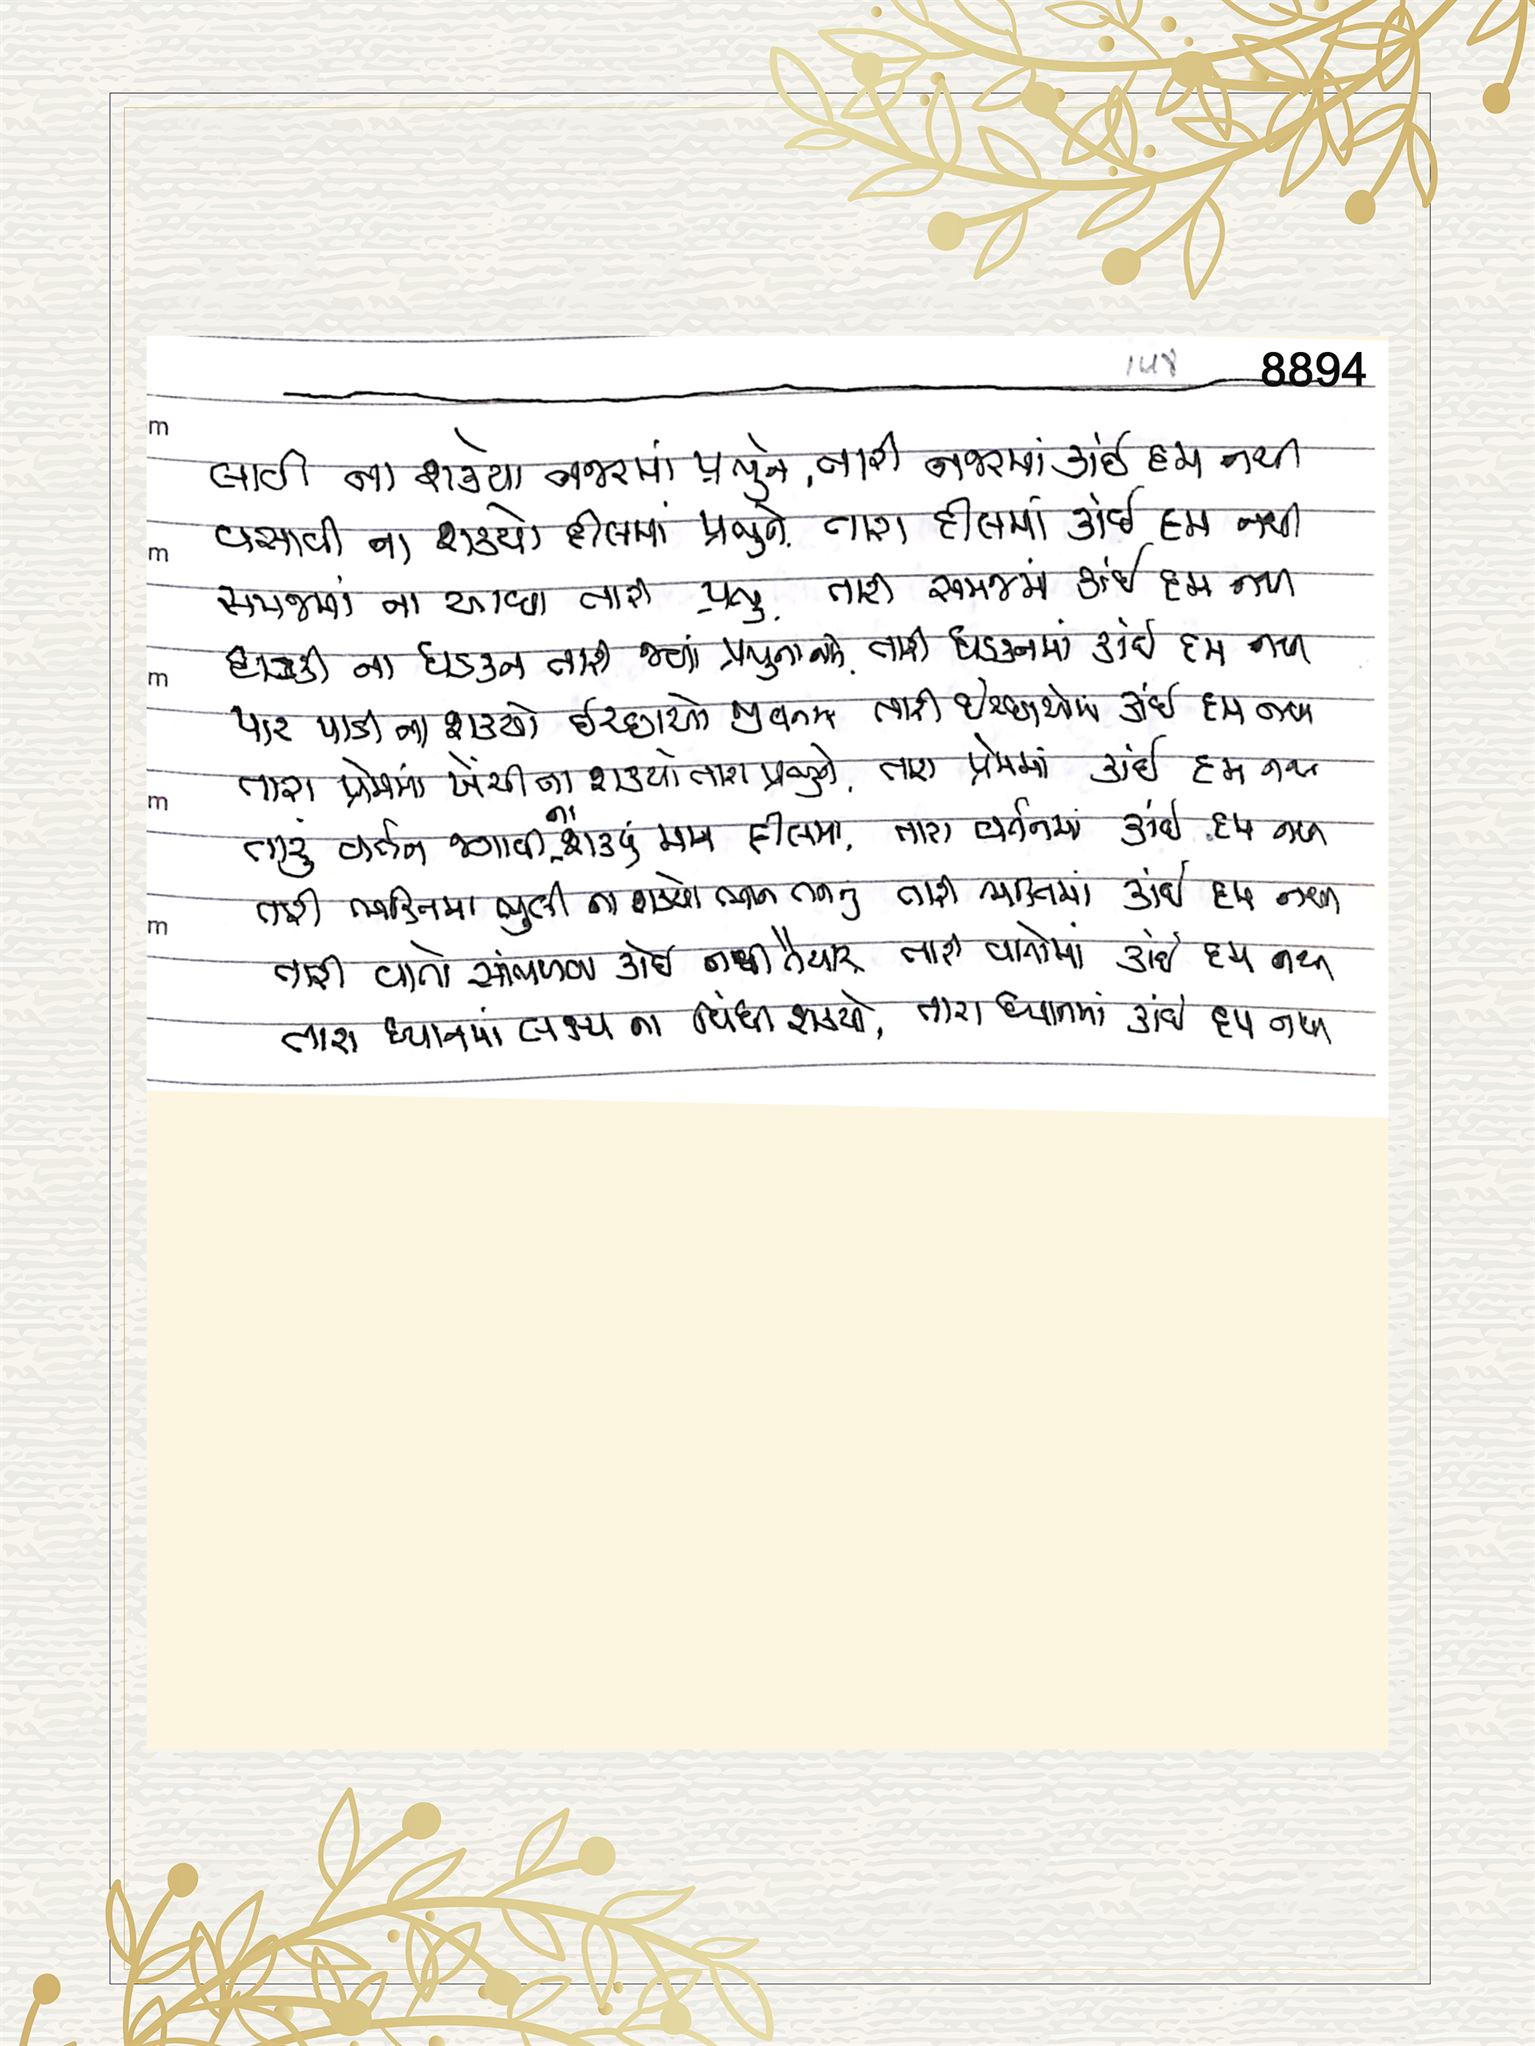 ૧૫૪ 8894
લાવી ના શક્યો નજરમાં પ્રભુને, તારી નજરમાં કાંઈ દમ નથી
વસાવી ના શક્યો દીલમાં પ્રભુને, તારા દીલમાં કાંઈ દમ નથી
સમજમાં ના આવ્યા તારી પ્રભુ, તારી સમજમાં કાંઈ દમ નથી
ના ધડકન તારી જ્યાં પ્રભુના નામે, તારી ધડકનમાં કાંઈ દમ નથી
પાર પાડી ના શક્યો ઈચ્છાઓ જીવનમાં, તારી ઈચ્છાઓમાં કાંઈ દમ નથી
તારા પ્રેમમાં ખેંચી ના શક્યો તારા પ્રભુને, તારા પ્રેમમાં કાંઈ દમ નથી
તારું વર્તન જગાવી ના શક્યું માન દીલમાં, તારા વર્તનમાં કાંઈ દમ નથી
તારી ભક્તિમાં ભુલી ના શક્યો ભાન તનનું તારી ભક્તિમાં કાંઈ દમ નથી
તારી વાતો સાંભળવા કોઈ નથી તૈયાર, તારી વાતોમાં કાંઈ દમ નથી
તારા ધ્યાનમાં લક્ષ્ય ના વિંધી શક્યો, તારા ધ્યાનમાં કાંઈ દમ નથી
m
m
m
m
m